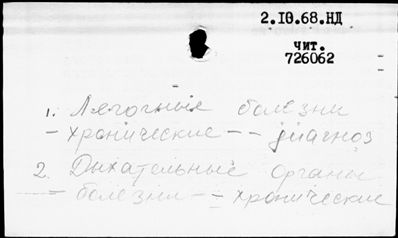 2.10.68.НД
чит.
726062
1. Легочные болезни
- хронические -- диагноз
2. Дыхательные органы
- болезни -- хронические